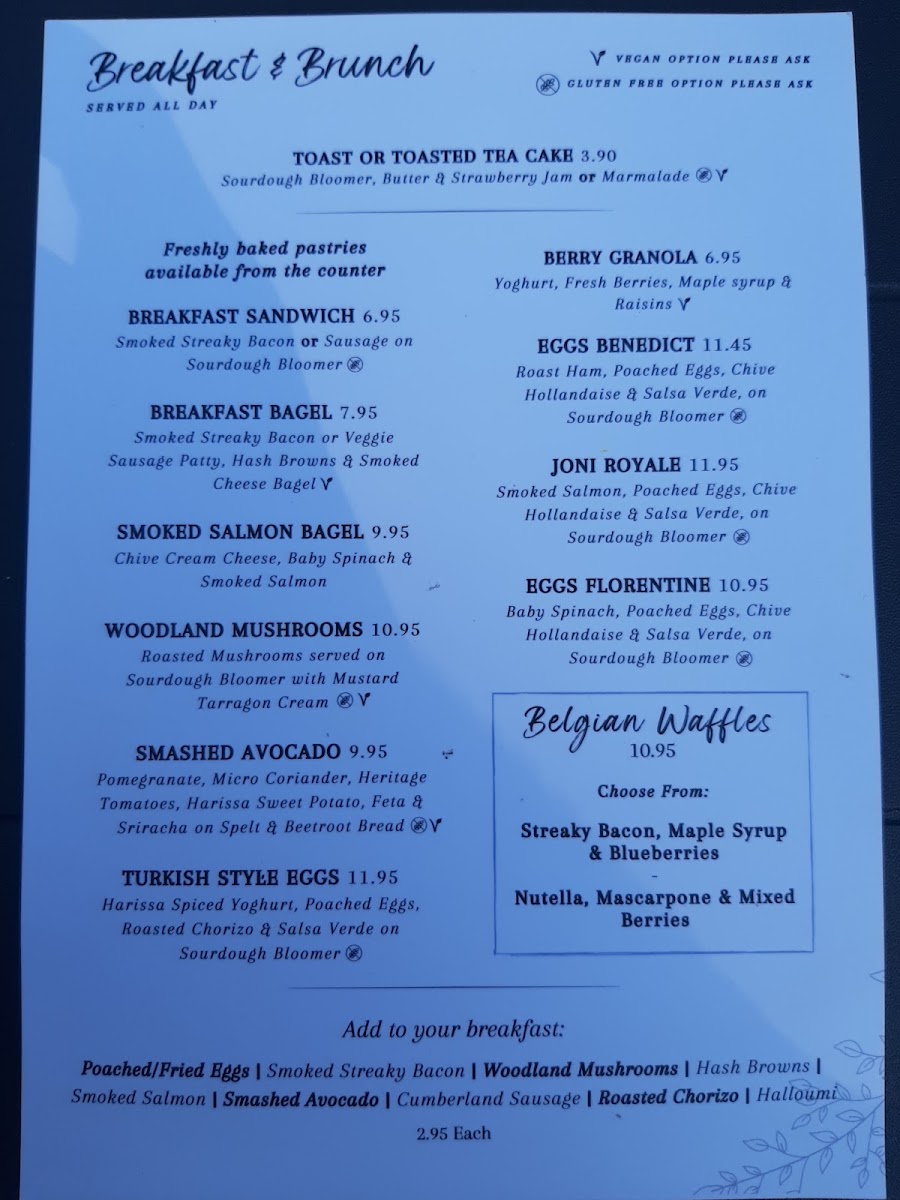 Breakfast & Brunch
SERVED ALL DAY
VEGAN OPTION PLEASE ASK
GLUTEN FREE OPTION PLEASE ASK
TOAST OR TOASTED TEA CAKE 3.90
Sourdough Bloomer, Butter & Strawberry Jam or Marmalade
Freshly baked pastries
available from the counter
BREAKFAST SANDWICH 6.95
Smoked Streaky Bacon or Sausage on
Sourdough Bloomer
BREAKFAST BAGEL 7.95
Smoked Streaky Bacon or Veggie
Sausage Patty, Hash Browns & Smoked
Cheese Bagel
SMOKED SALMON BAGEL 9.95
Chive Cream Cheese, Baby Spinach &
Smoked Salmon
WOODLAND MUSHROOMS 10.95
Roasted Mushrooms served on
Sourdough Bloomer with Mustard
Tarragon Cream
SMASHED AVOCADO 9.95
Pomegranate, Micro Coriander, Heritage
Tomatoes, Harissa Sweet Potato, Feta &
Sriracha on Spelt & Beetroot Bread
TURKISH STYLE EGGS 11.95
Harissa Spiced Yoghurt, Poached Eggs,
Roasted Chorizo & Salsa Verde on
Sourdough Bloomer
BERRY GRANOLA 6.95
Yoghurt, Fresh Berries, Maple syrup &
Raisins
EGGS BENEDICT 11.45
Roast Ham, Poached Eggs, Chive
Hollandaise & Salsa Verde, on
Sourdough Bloomer
JONI ROYALE 11.95
Smoked Salmon, Poached Eggs, Chive
Hollandaise & Salsa Verde, on
Sourdough Bloomer
EGGS FLORENTINE 10.95
Baby Spinach, Poached Eggs, Chive
Hollandaise & Salsa Verde, on
Sourdough Bloomer
Belgian Waffles
10.95
Choose From:
Streaky Bacon, Maple Syrup
& Blueberries
-
Nutella, Mascarpone & Mixed
Berries
Add to your breakfast:
Poached/Fried Eggs | Smoked Streaky Bacon | Woodland Mushrooms | Hash Browns |
Smoked Salmon | Smashed Avocado | Cumberland Sausage | Roasted Chorizo | Halloumi
2.95 Each